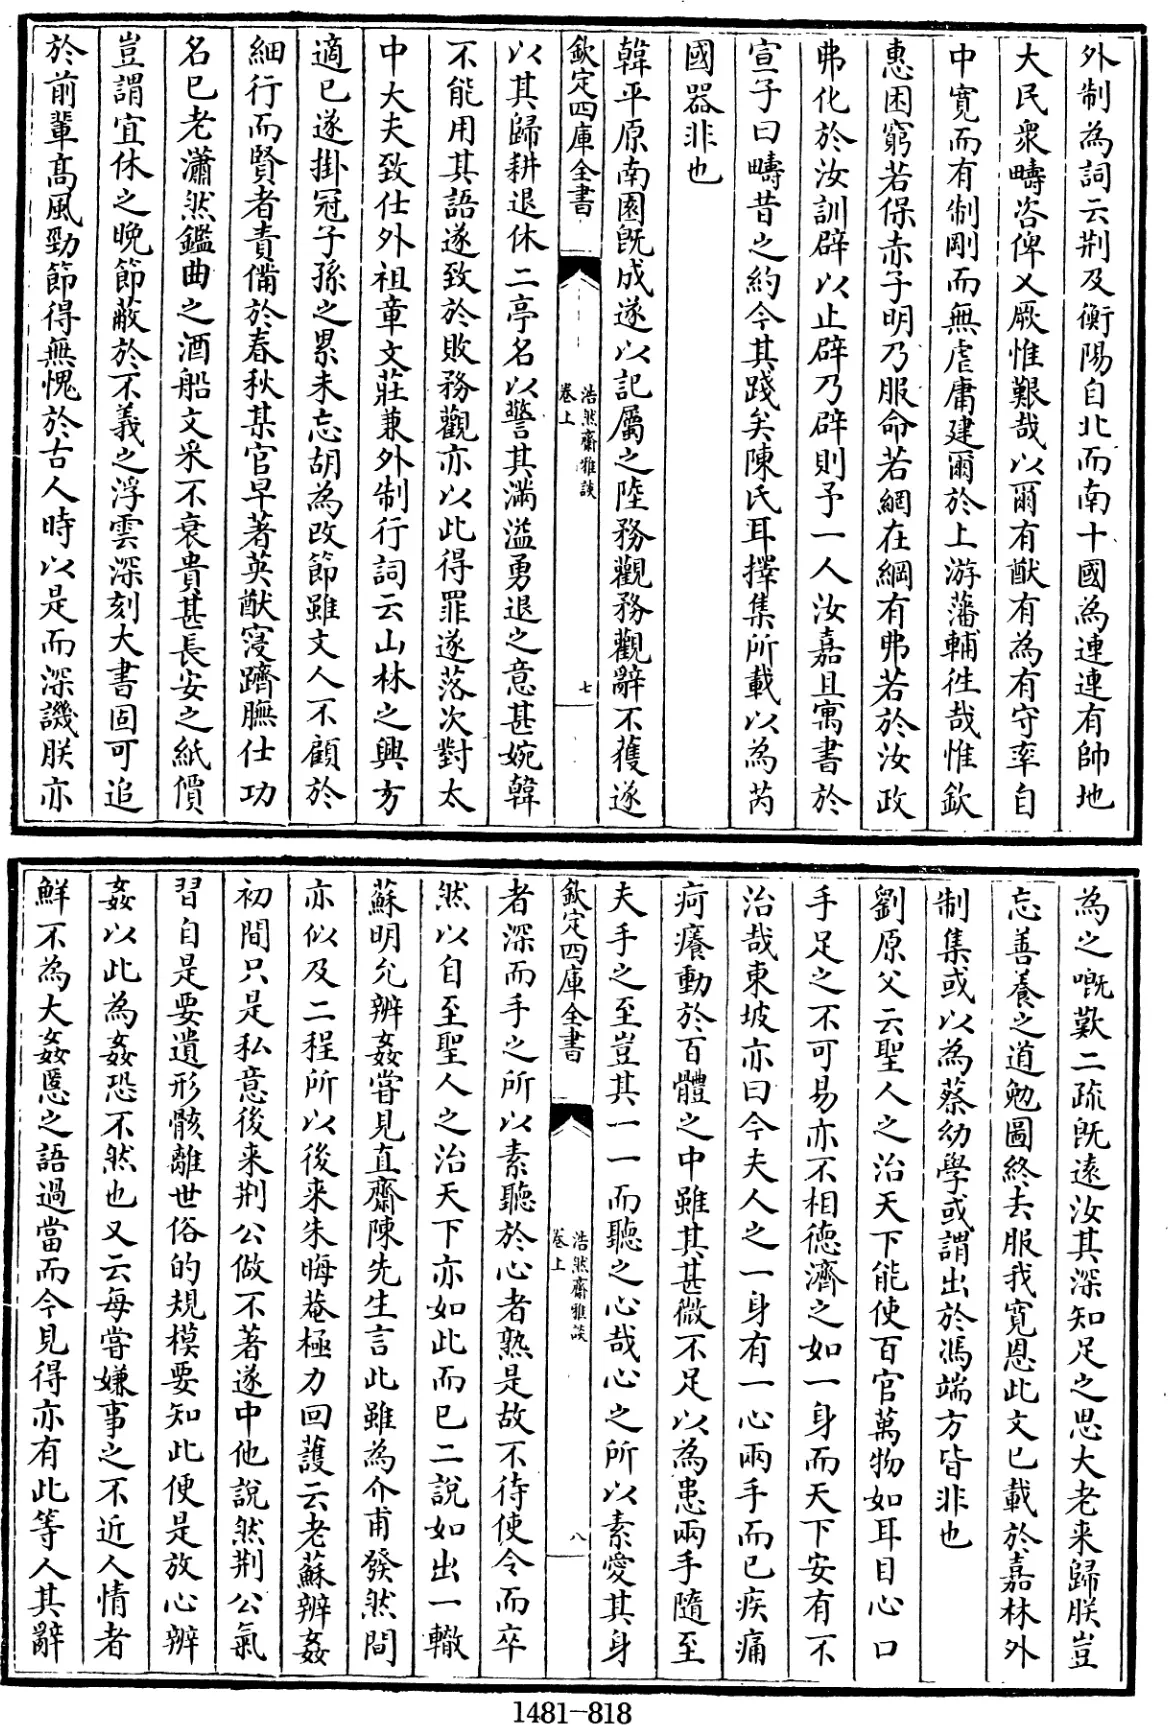 外制為詞云荆及衡陽自北而南十國為連連有帥地
大民衆疇咨俾乂厥惟艱哉以爾有猷有為有守率自
中寛而有制剛而無虐庸建爾於上游藩輔徃哉惟欽
惠困窮若保赤子明乃服命若網在綱有弗若於汝政
弗化於汝訓辟以止辟乃辟則予一人汝嘉且寓書於
宣子曰疇昔之約今其踐矣陳氏耳擇集所載以為芮
國器非也
韓平原南園旣成遂以記屬之陸務觀務觀辭不獲遂
欽定四庫全書
浩然齋雅談
卷上
七
以其歸耕退休二亭名以警其滿溢勇退之意甚婉韓
不能用其語遂致於敗務觀亦以此得罪遂落次對太
中大夫致仕外祖章文莊兼外制行詞云山林之興方
適已遂掛冠子孫之累未忘胡為改節雖文人不顧於
細行而賢者責備於春秋某官早著英猷寖躋膴仕功
名已老瀟然鑑曲之酒船文采不衰貴甚長安之紙價
豈謂宜休之晩節蔽於不義之浮雲深刻大書固可追
於前輩髙風勁節得無愧於古人時以是而深譏朕亦
為之嘅歎二疏旣逺汝其深知足之思大老来歸朕豈
忘善養之道勉圖終去服我寛恩此文已載於嘉林外
制集或以為蔡幼學或謂出於馮端方皆非也
劉原父云聖人之治天下能使百官萬物如耳目心口
手足之不可易亦不相徳濟之如一身而天下安有不
治哉東坡亦曰今夫人之一身有一心兩手而已疾痛
疴癢動於百體之中雖其甚微不足以為患兩手隨至
夫手之至豈其一一而聽之心哉心之所以素愛其身
欽定四庫全書
浩然齋雅談
卷上
八
者深而手之所以素聽於心者熟是故不待使令而卒
然以自至聖人之治天下亦如此而已二說如出一轍
蘇明允辨姦嘗見直齋陳先生言此雖為介甫發然間
亦似及二程所以後来朱晦菴極力回護云老蘇辨姦
初間只是私意後来荆公做不著遂中他說然荆公氣
習自是要遺形骸離世俗的規模要知此便是放心辨
姦以此為姦恐不然也又云每嘗嫌事之不近人情者
鮮不為大姦慝之語過當而今見得亦有此等人其辭
1481-818